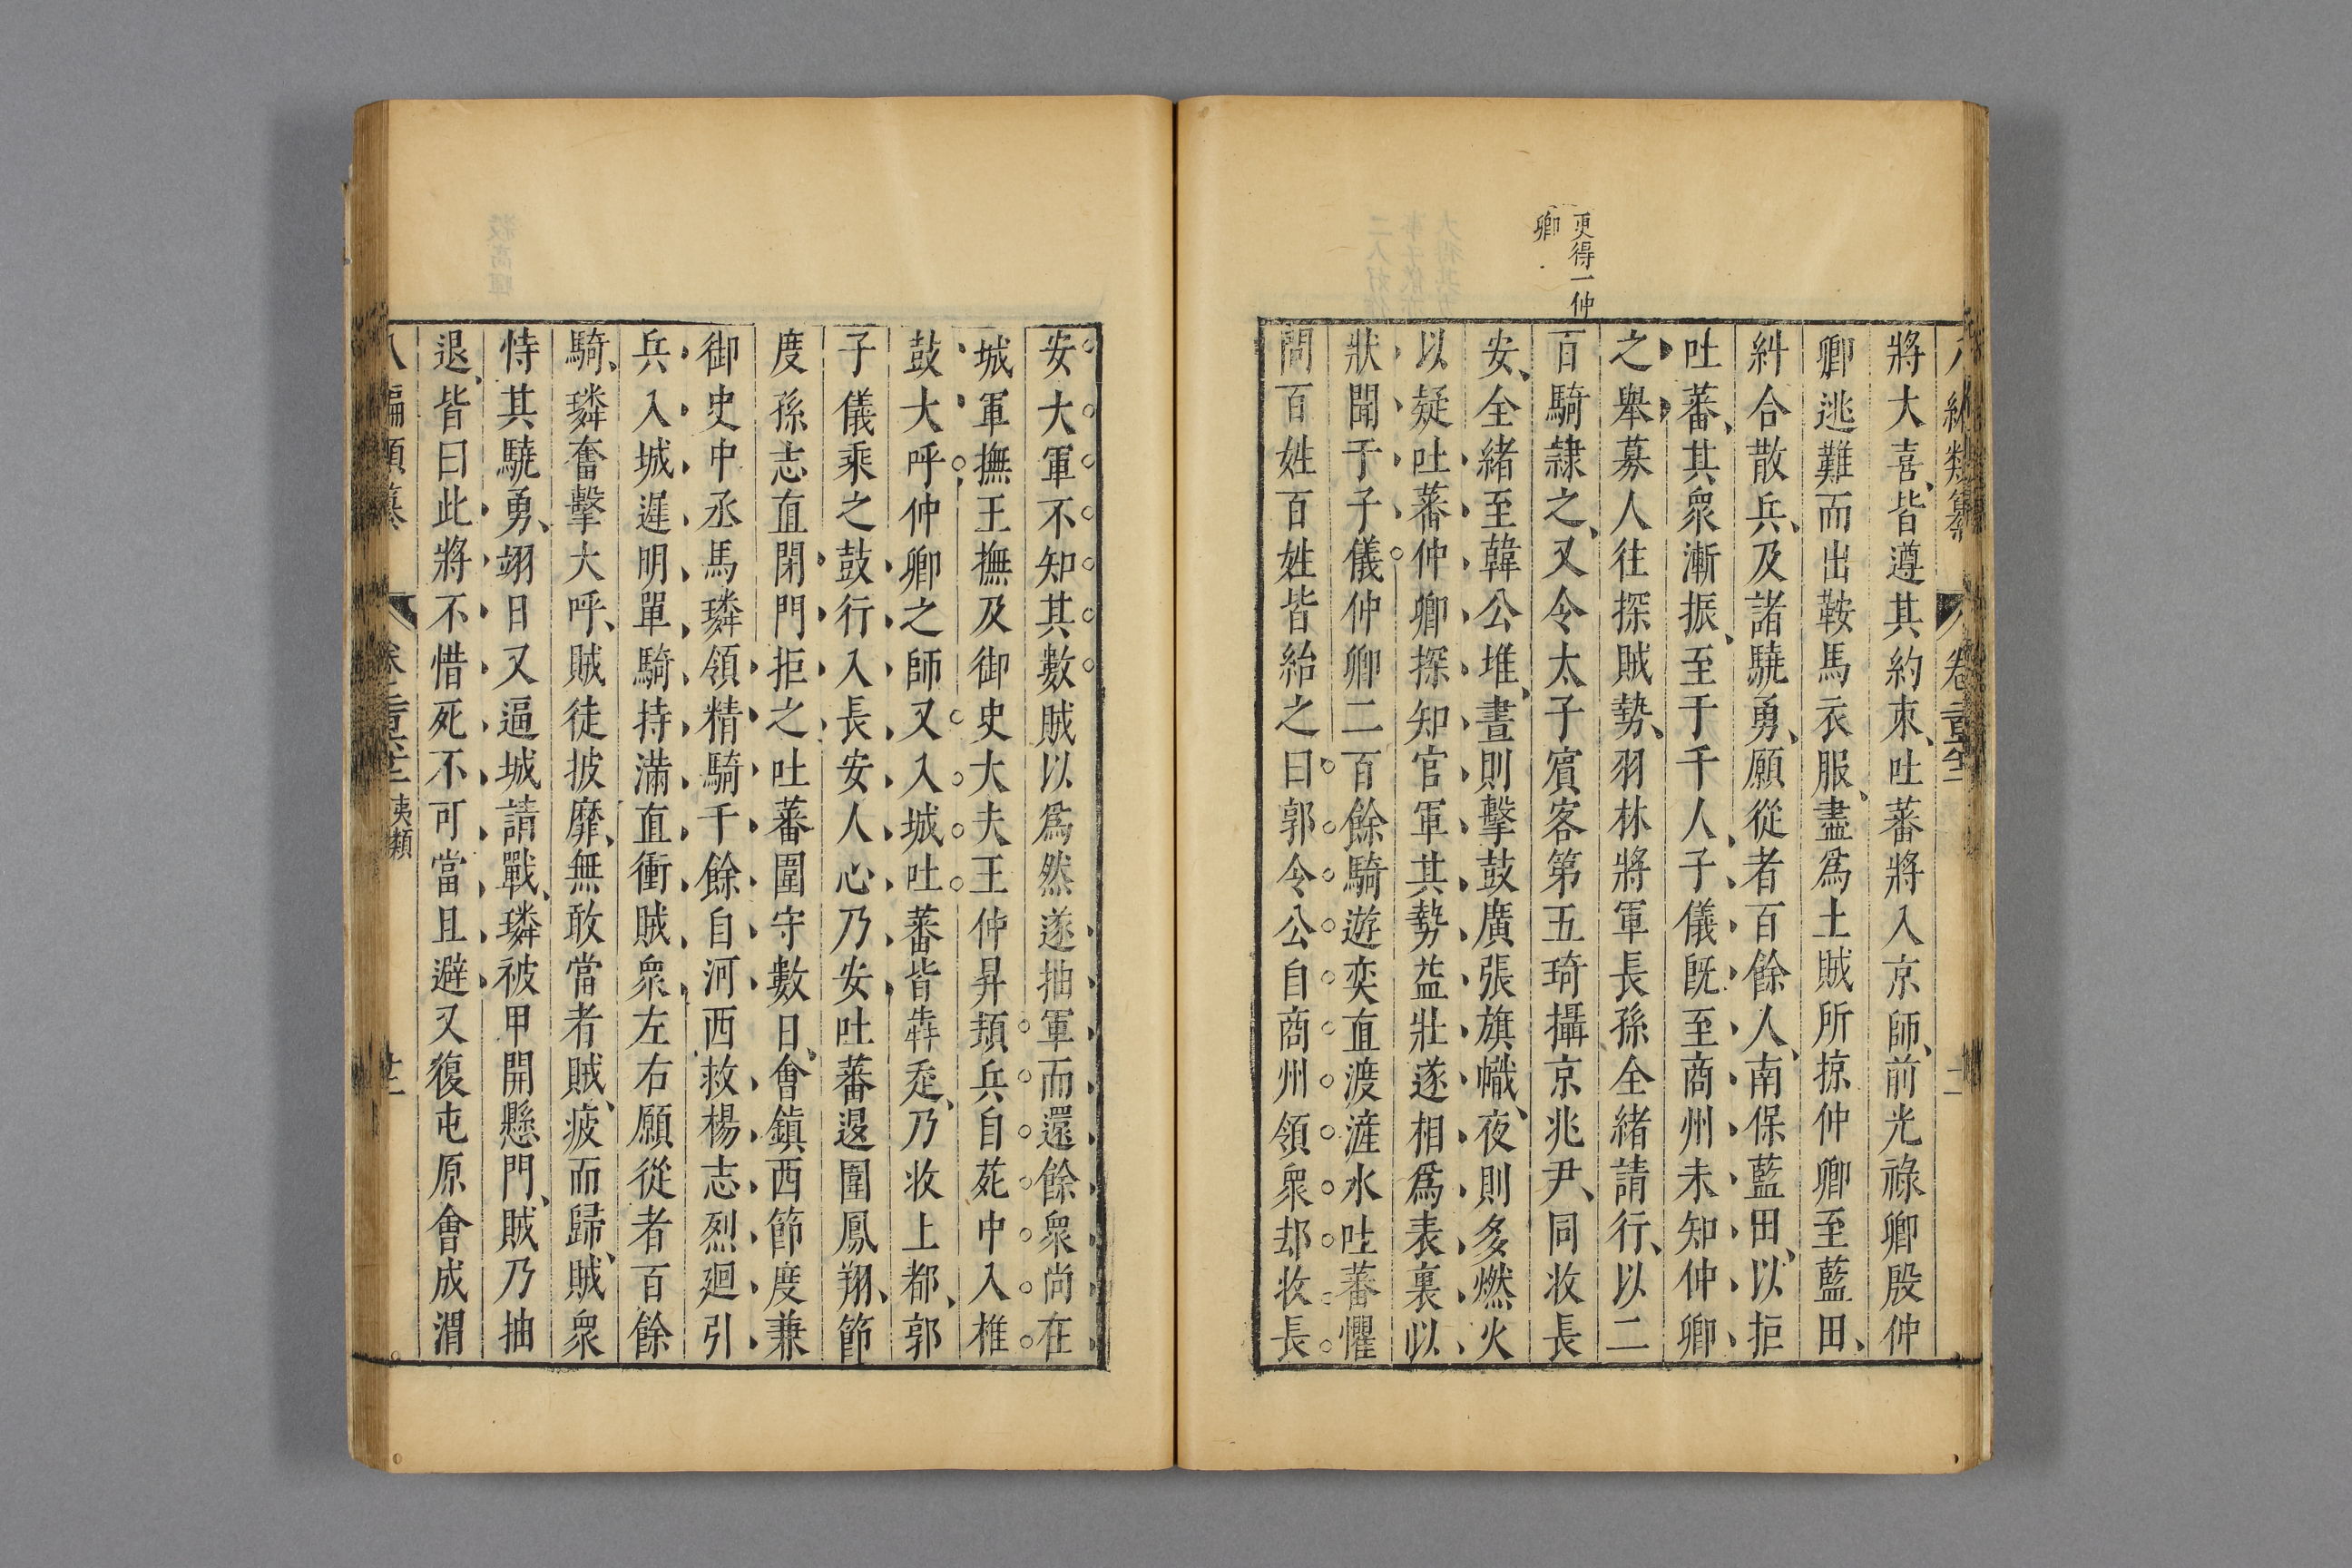 更得一仲
卿
將大喜皆遵其約束吐蕃將入京師前光祿卿殷仲
卿逃難而出鞍馬衣服盡爲土賊所掠仲卿至藍田
糾合散兵及諸驍勇願從者百餘人南保藍田以拒
吐蕃其衆漸振至于千人子儀旣至商州未知仲卿
之舉募人往探賊勢羽林將軍長孫全緒請行以二
百騎隸之又令太子賓客第五琦攝京兆尹同收長
安全緒至韓公堆晝則擊鼓廣張旗幟夜則多燃火
以疑吐蕃仲卿探知官軍其勢益壯遂相爲表裏以
狀聞于子儀仲卿二百餘騎遊奕直渡滻水吐蕃懼
問百姓百姓皆紿之曰郭令公自商州領衆却收長
安大軍不知其數賊以爲然遂抽軍而還餘衆尚在
城軍撫王撫及御史大夫王仲昇頓兵自苑中入椎
鼓大呼仲卿之師又入城吐蕃皆犇走乃收上都郭
子儀乘之鼓行入長安人心乃安吐蕃退圍鳳翔節
度孫志直閉門拒之吐蕃圍守數日會鎮西節度兼
御史中丞馬璘領精騎千餘自河西救楊志烈廻引
兵入城遲明單騎持滿直衝賊衆左右願從者百餘
騎璘奮擊大呼賊徒披靡無敢當者賊疲而歸賊衆
恃其驍勇翊日又逼城請戰璘被甲開懸門賊乃抽
退皆曰此將不惜死不可當且避又復屯原會成渭
八編類纂
夷類